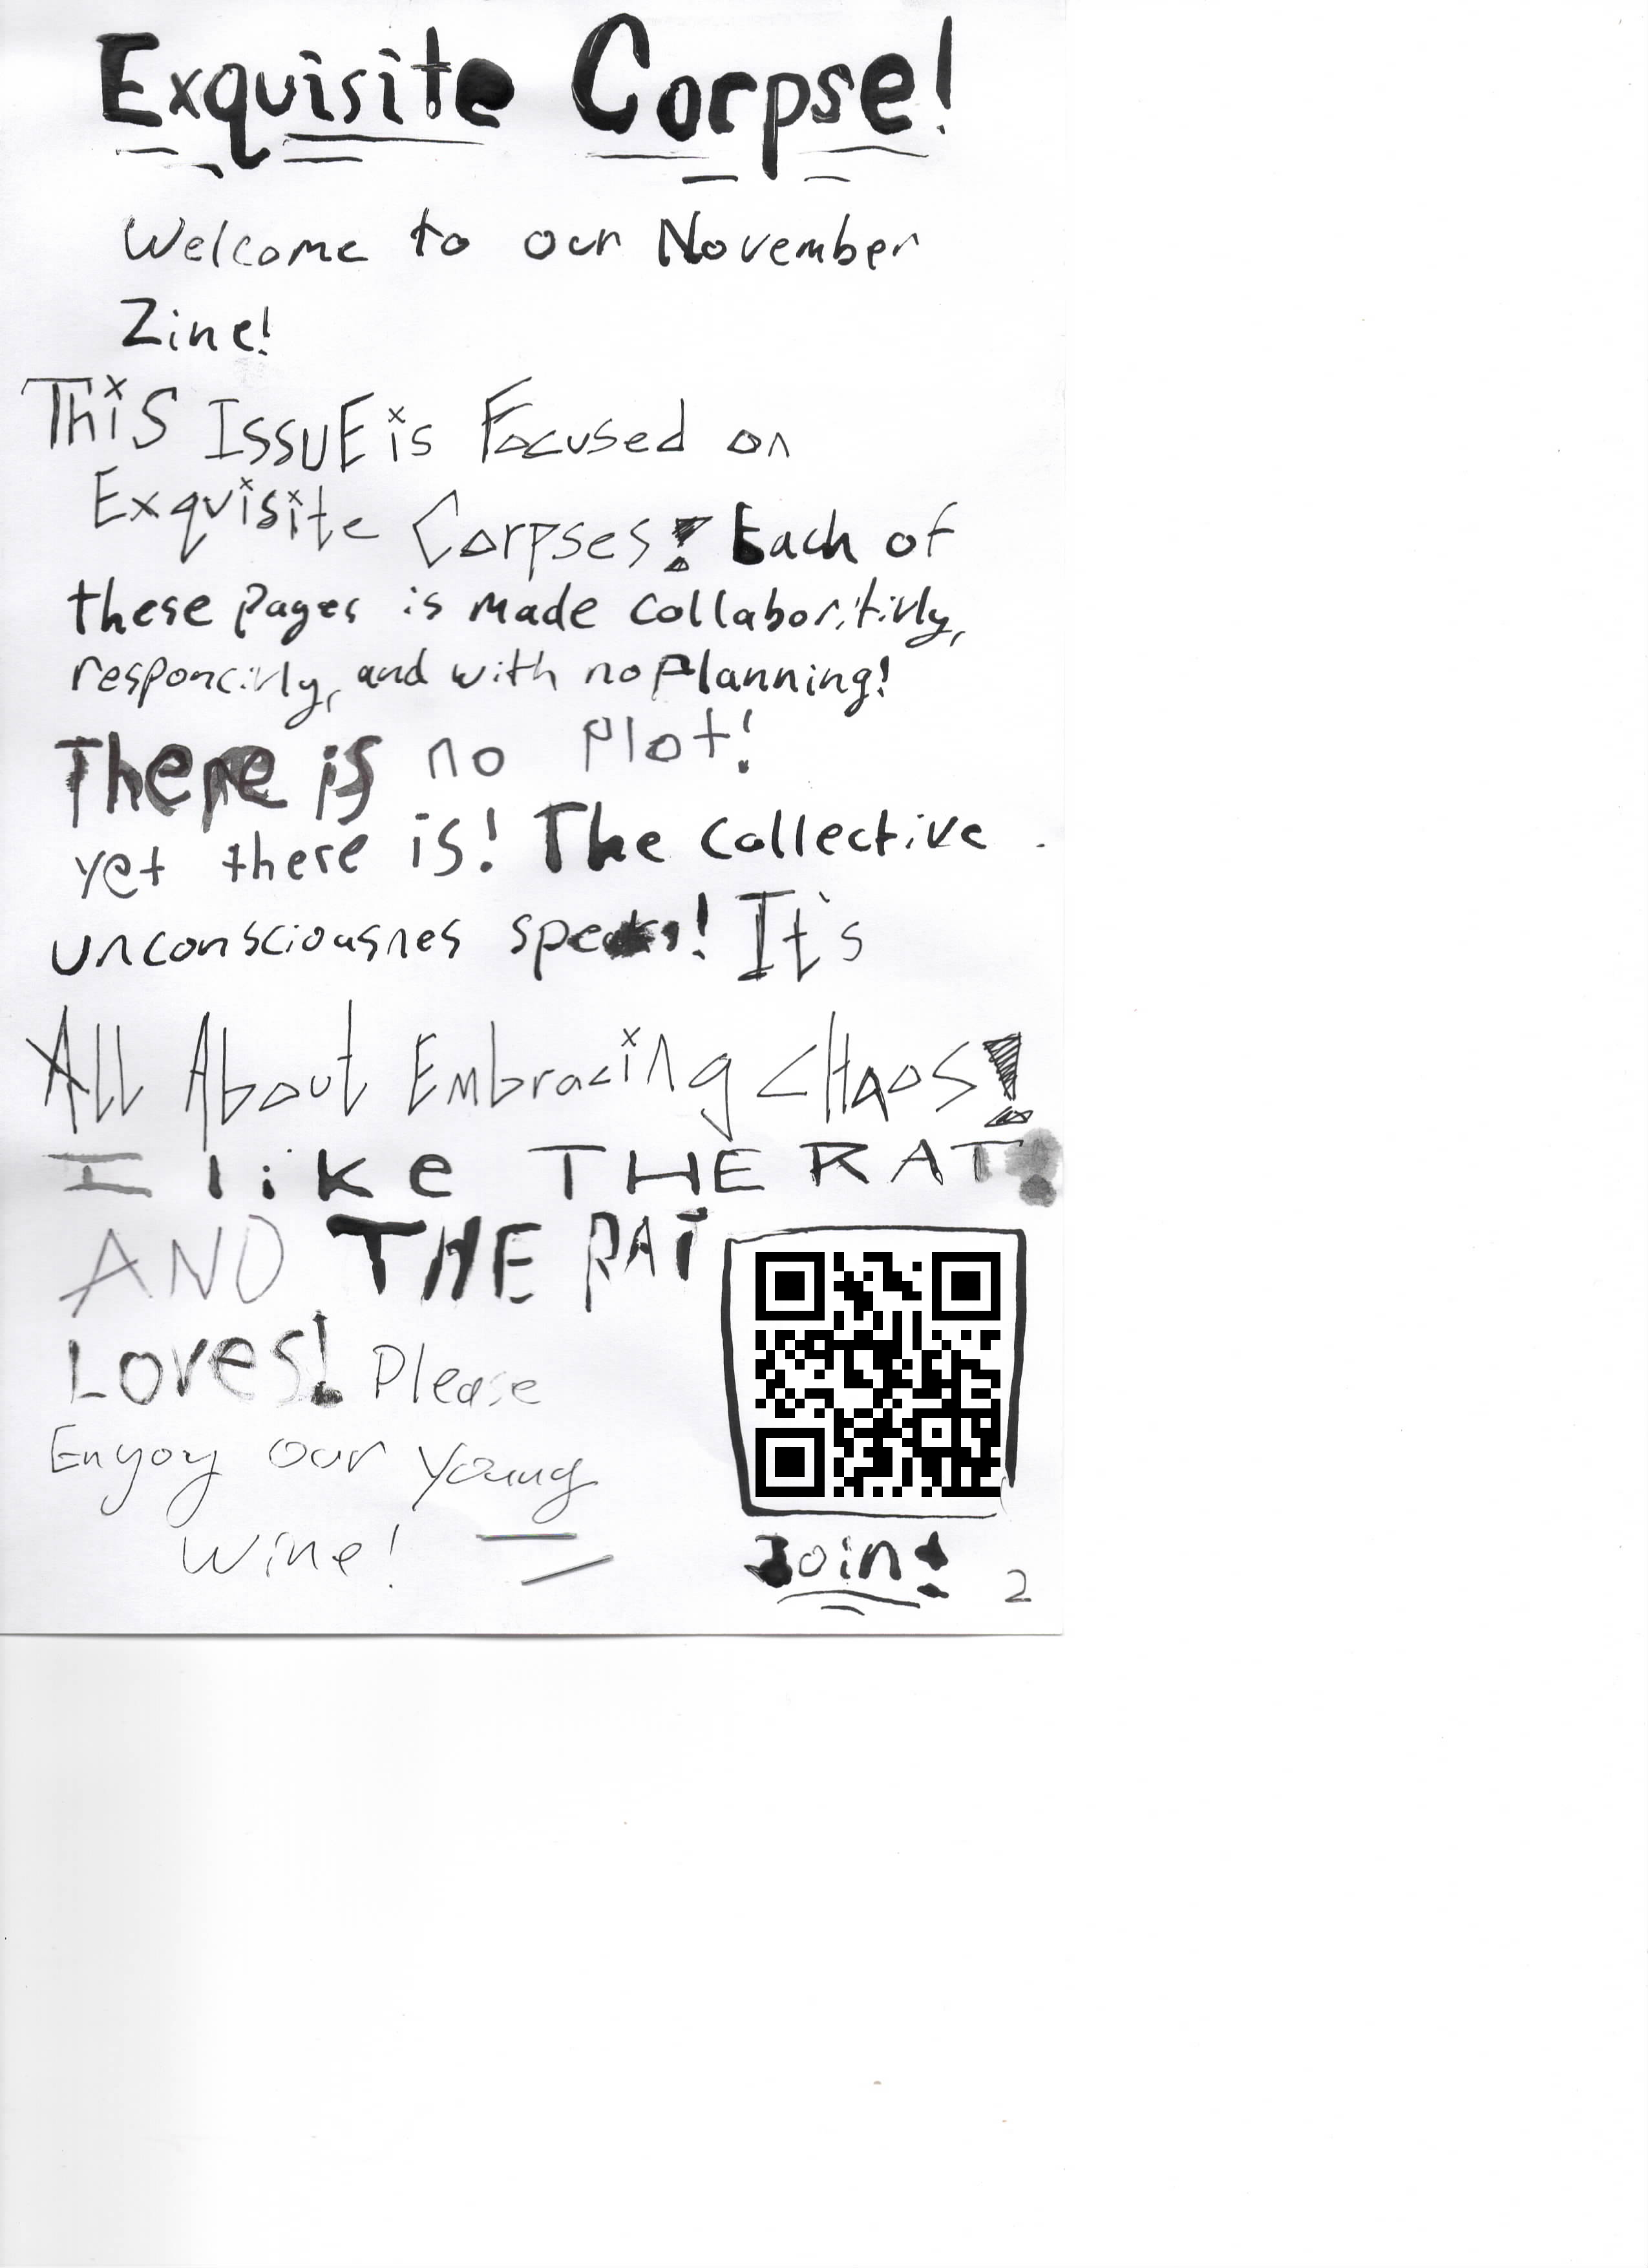 Exquisite Corpse!
Welcome to our November
Zine!
This ISSUE is Focused on
Exquisite Corpses! Each of
these pages is made collaboritivly,
responcivly, and with no Planning!
There is no Plot!
yet there is! The Collective
unconsciousnes speaks! It's
All About Embracing CHaos!
I like THE RAT!
AND THE RAT
Loves! Please
Enyoy our young
wine!
Join!
2